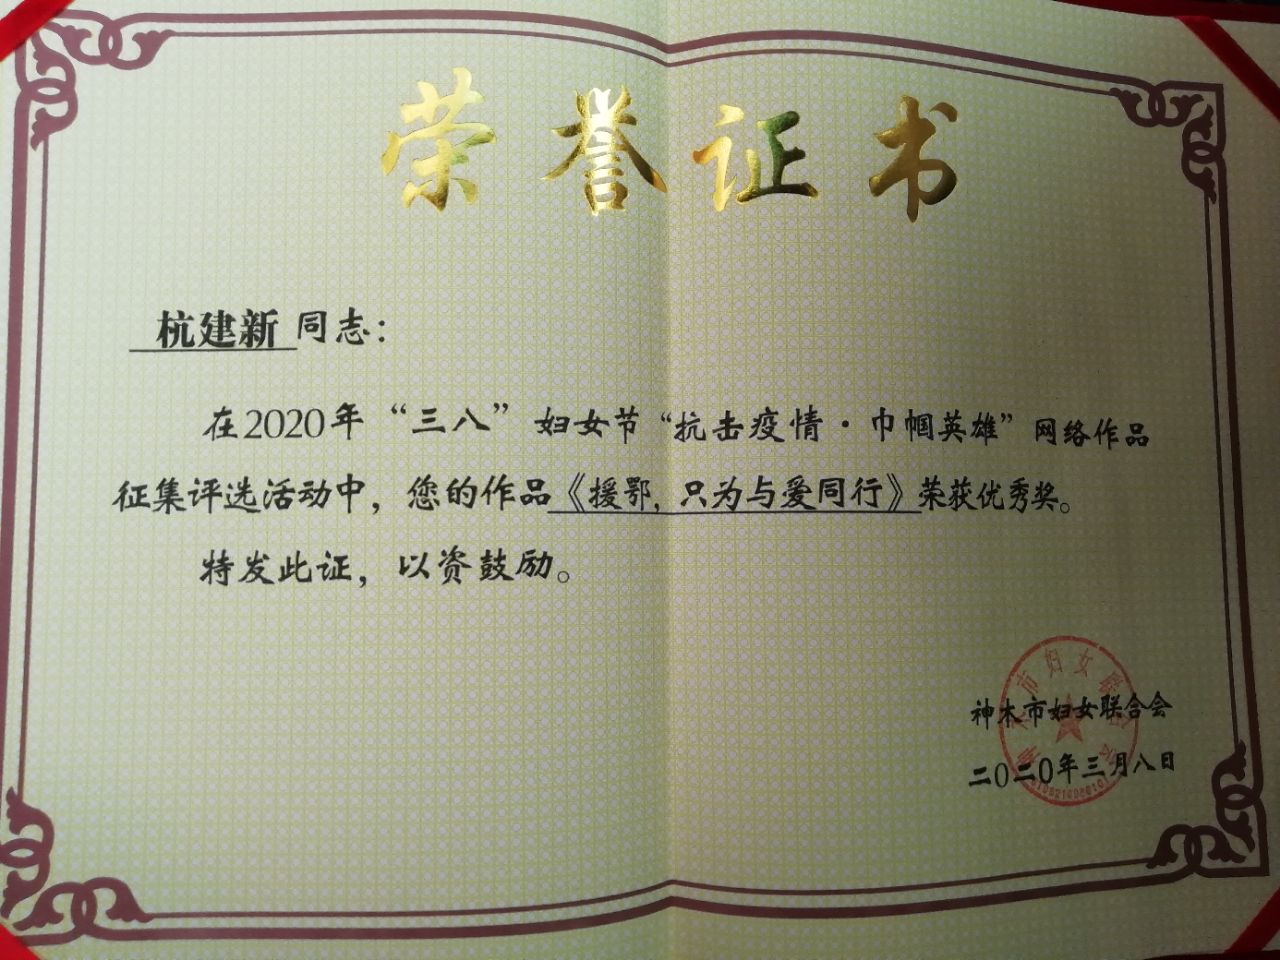 荣誉证书
杭建新 同志：
在2020年“三八”妇女节“抗击疫情·巾帼英雄”网络作品
征集评选活动中，您的作品《援鄂，只为与爱同行》荣获优秀奖。
特发此证，以资鼓励。
神木市妇女联合会
神木市妇女联合会
二〇二〇年三月八日